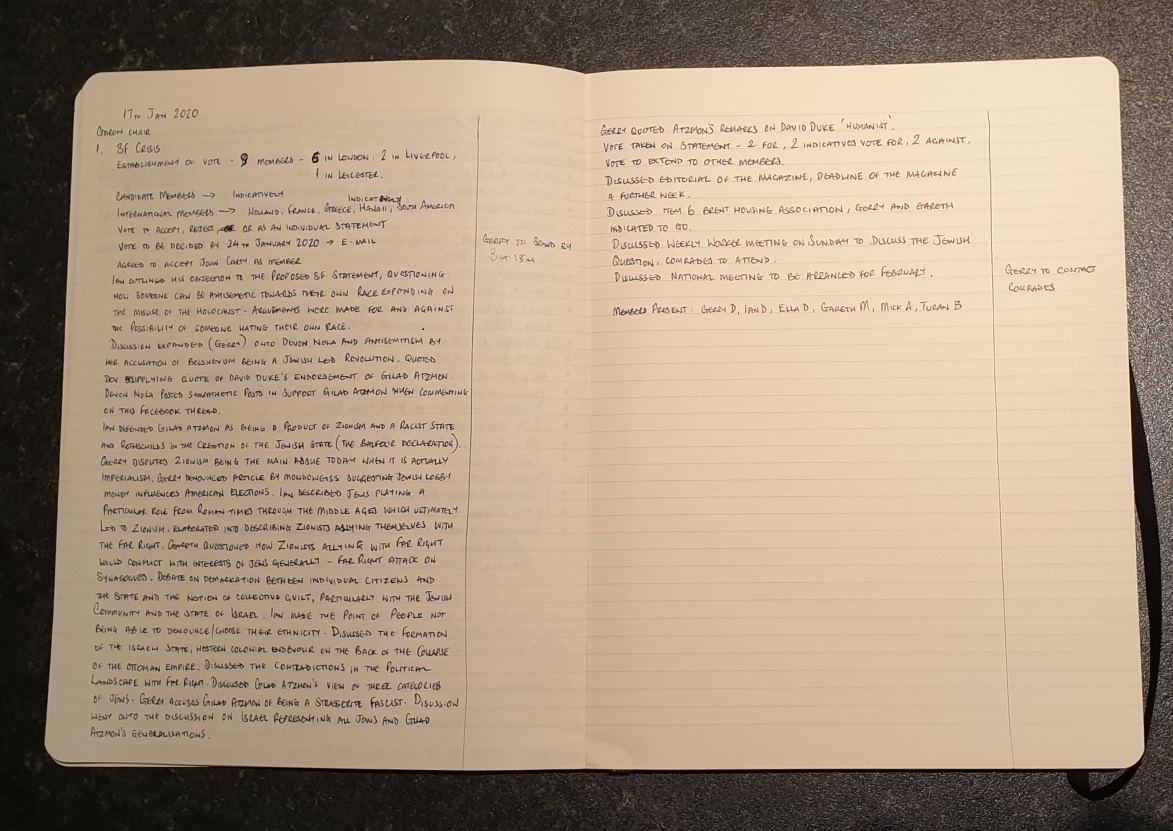 17TH JAN 2020
GARETH CHAIR
1. SF CRISIS
ESTABLISHMENT OF VOTE - 9 MEMBERS - 6 IN LONDON, 2 IN LIVERPOOL,
1 IN LEICESTER.
CANDIDATE MEMBERS → INDICATIVELY
INDICATIVELY
INTERNATIONAL MEMBERS → HOLLAND, FRANCE, GREECE, HAWAII, SOUTH AMERICA
VOTE TO ACCEPT, REJECT, OR AS AN INDIVIDUAL STATEMENT
VOTE TO BE DECIDED BY 24TH JANUARY 2020 → E-MAIL
AGREED TO ACCEPT JOHN CARTY AS MEMBER
IAN OUTLINED HIS OBJECTION TO THE PROPOSED SF STATEMENT, QUESTIONING
HOW SOMEONE CAN BE ANTISEMETIC TOWARDS THEIR OWN RACE EXPANDING ON
THE MISUSE OF THE HOLOCAUST. ARGUEMENTS WERE MADE FOR AND AGAINST
THE POSSIBILITY OF SOMEONE HATING THEIR OWN RACE.
DISCUSSION EXPANDED (GERRY) ONTO DEVON NOLA AND ANTISEMITISM BY
HER ACCUSATION OF BOLSHEVISM BEING A JEWISH LED REVOLUTION. QUOTED
DEV SUPPLYING QUOTE OF DAVID DUKE'S ENDORSEMENT OF GILAD ATZMEN.
DEVON NOLA POSTED SYMPATHETIC POSTS IN SUPPORT GILAD ATZMON WHEN COMMENTING
ON THIS FACEBOOK THREAD.
IAN DEFENDED GILAD ATZMON AS BEING A PRODUCT OF ZIONISM AND A RACIST STATE
AND ROTHSCHILDS IN THE CREATION OF THE JEWISH STATE (THE BALFOUR DECLARATION).
GERRY DISPUTED ZIONISM BEING THE MAIN ISSUE TODAY WHEN IT IS ACTUALLY
IMPERIALISM. GERRY DENOUNCED ARTICLE BY MONDOWEISS SUGGESTING JEWISH LOBBY
MONEY INFLUENCES AMERICAN ELECTIONS. IAN DESCRIBED JEWS PLAYING A
PARTICULAR ROLE FROM ROMAN TIMES THROUGH THE MIDDLE AGES WHICH ULTIMATELY
LED TO ZIONISM. ELABORATED INTO DESCRIBING ZIONISTS ALLYING THEMSELVES WITH
THE FAR RIGHT. GARETH QUESTIONED HOW ZIONISTS ALLYING WITH FAR RIGHT
WOULD CONFLICT WITH INTERESTS OF JEWS GENERALLY - FAR RIGHT ATTACK ON
SYNAGOGUES. DEBATE ON DEMARKATION BETWEEN INDIVIDUAL CITIZENS AND
THE STATE AND THE NOTION OF COLLECTIVE GUILT, PARTICULARLY WITH THE JEWISH
COMMUNITY AND THE STATE OF ISRAEL. IAN MADE THE POINT OF PEOPLE NOT
BEING ABLE TO DENOUNCE/CHOOSE THEIR ETHNICITY. DISUSSED THE FORMATION
OF THE ISRAELI STATE, WESTERN COLONIAL ENDEVOUR ON THE BACK OF THE COLLAPSE
OF THE OTTOMAN EMPIRE. DISUSSED THE CONTRADICTIONS IN THE POLITICAL
LANDSCAPE WITH FAR RIGHT. DISCUSSED GILAD ATZMON'S VIEW OF THREE CATEGORIES
OF JEWS. GERRY ACCUSES GILAD ATZMON OF BEING A STRASSERITE FASCIST. DISUSSION
WENT ONTO THE DISCUSSION ON ISRAEL REPRESENTING ALL JEWS AND GILAD
ATZMON'S GENERALISATIONS.
GERRY TO SEND BY
SAT 18TH
GERRY QUOTED ATZMON'S REMARKS ON DAVID DUKE 'HUMANIST'.
VOTE TAKEN ON STATEMENT - 2 FOR, 2 INDICATIVES VOTE FOR, 2 AGAINST.
VOTE TO EXTEND TO OTHER MEMBERS.
DISCUSSED EDITORIAL OF THE MAGAZINE, DEADLINE OF THE MAGAZINE
A FURTHER WEEK.
DISCUSSED ITEM 6. BRENT HOUSING ASSOCIATION, GERRY AND GARETH
INDICATED TO GO.
DISCUSSED WEEKLY WORKER MEETING ON SUNDAY TO DISCUSS THE JEWISH
QUESTION, COMRADES TO ATTEND.
DISCUSSED NATIONAL MEETING TO BE ARRANGED FOR FEBRUARY.
MEMBERS PRESENT: GERRY D, IAN D, ELLA D, GARETH M, MICK A, TURAN B
GERRY TO CONTACT
COMRADES